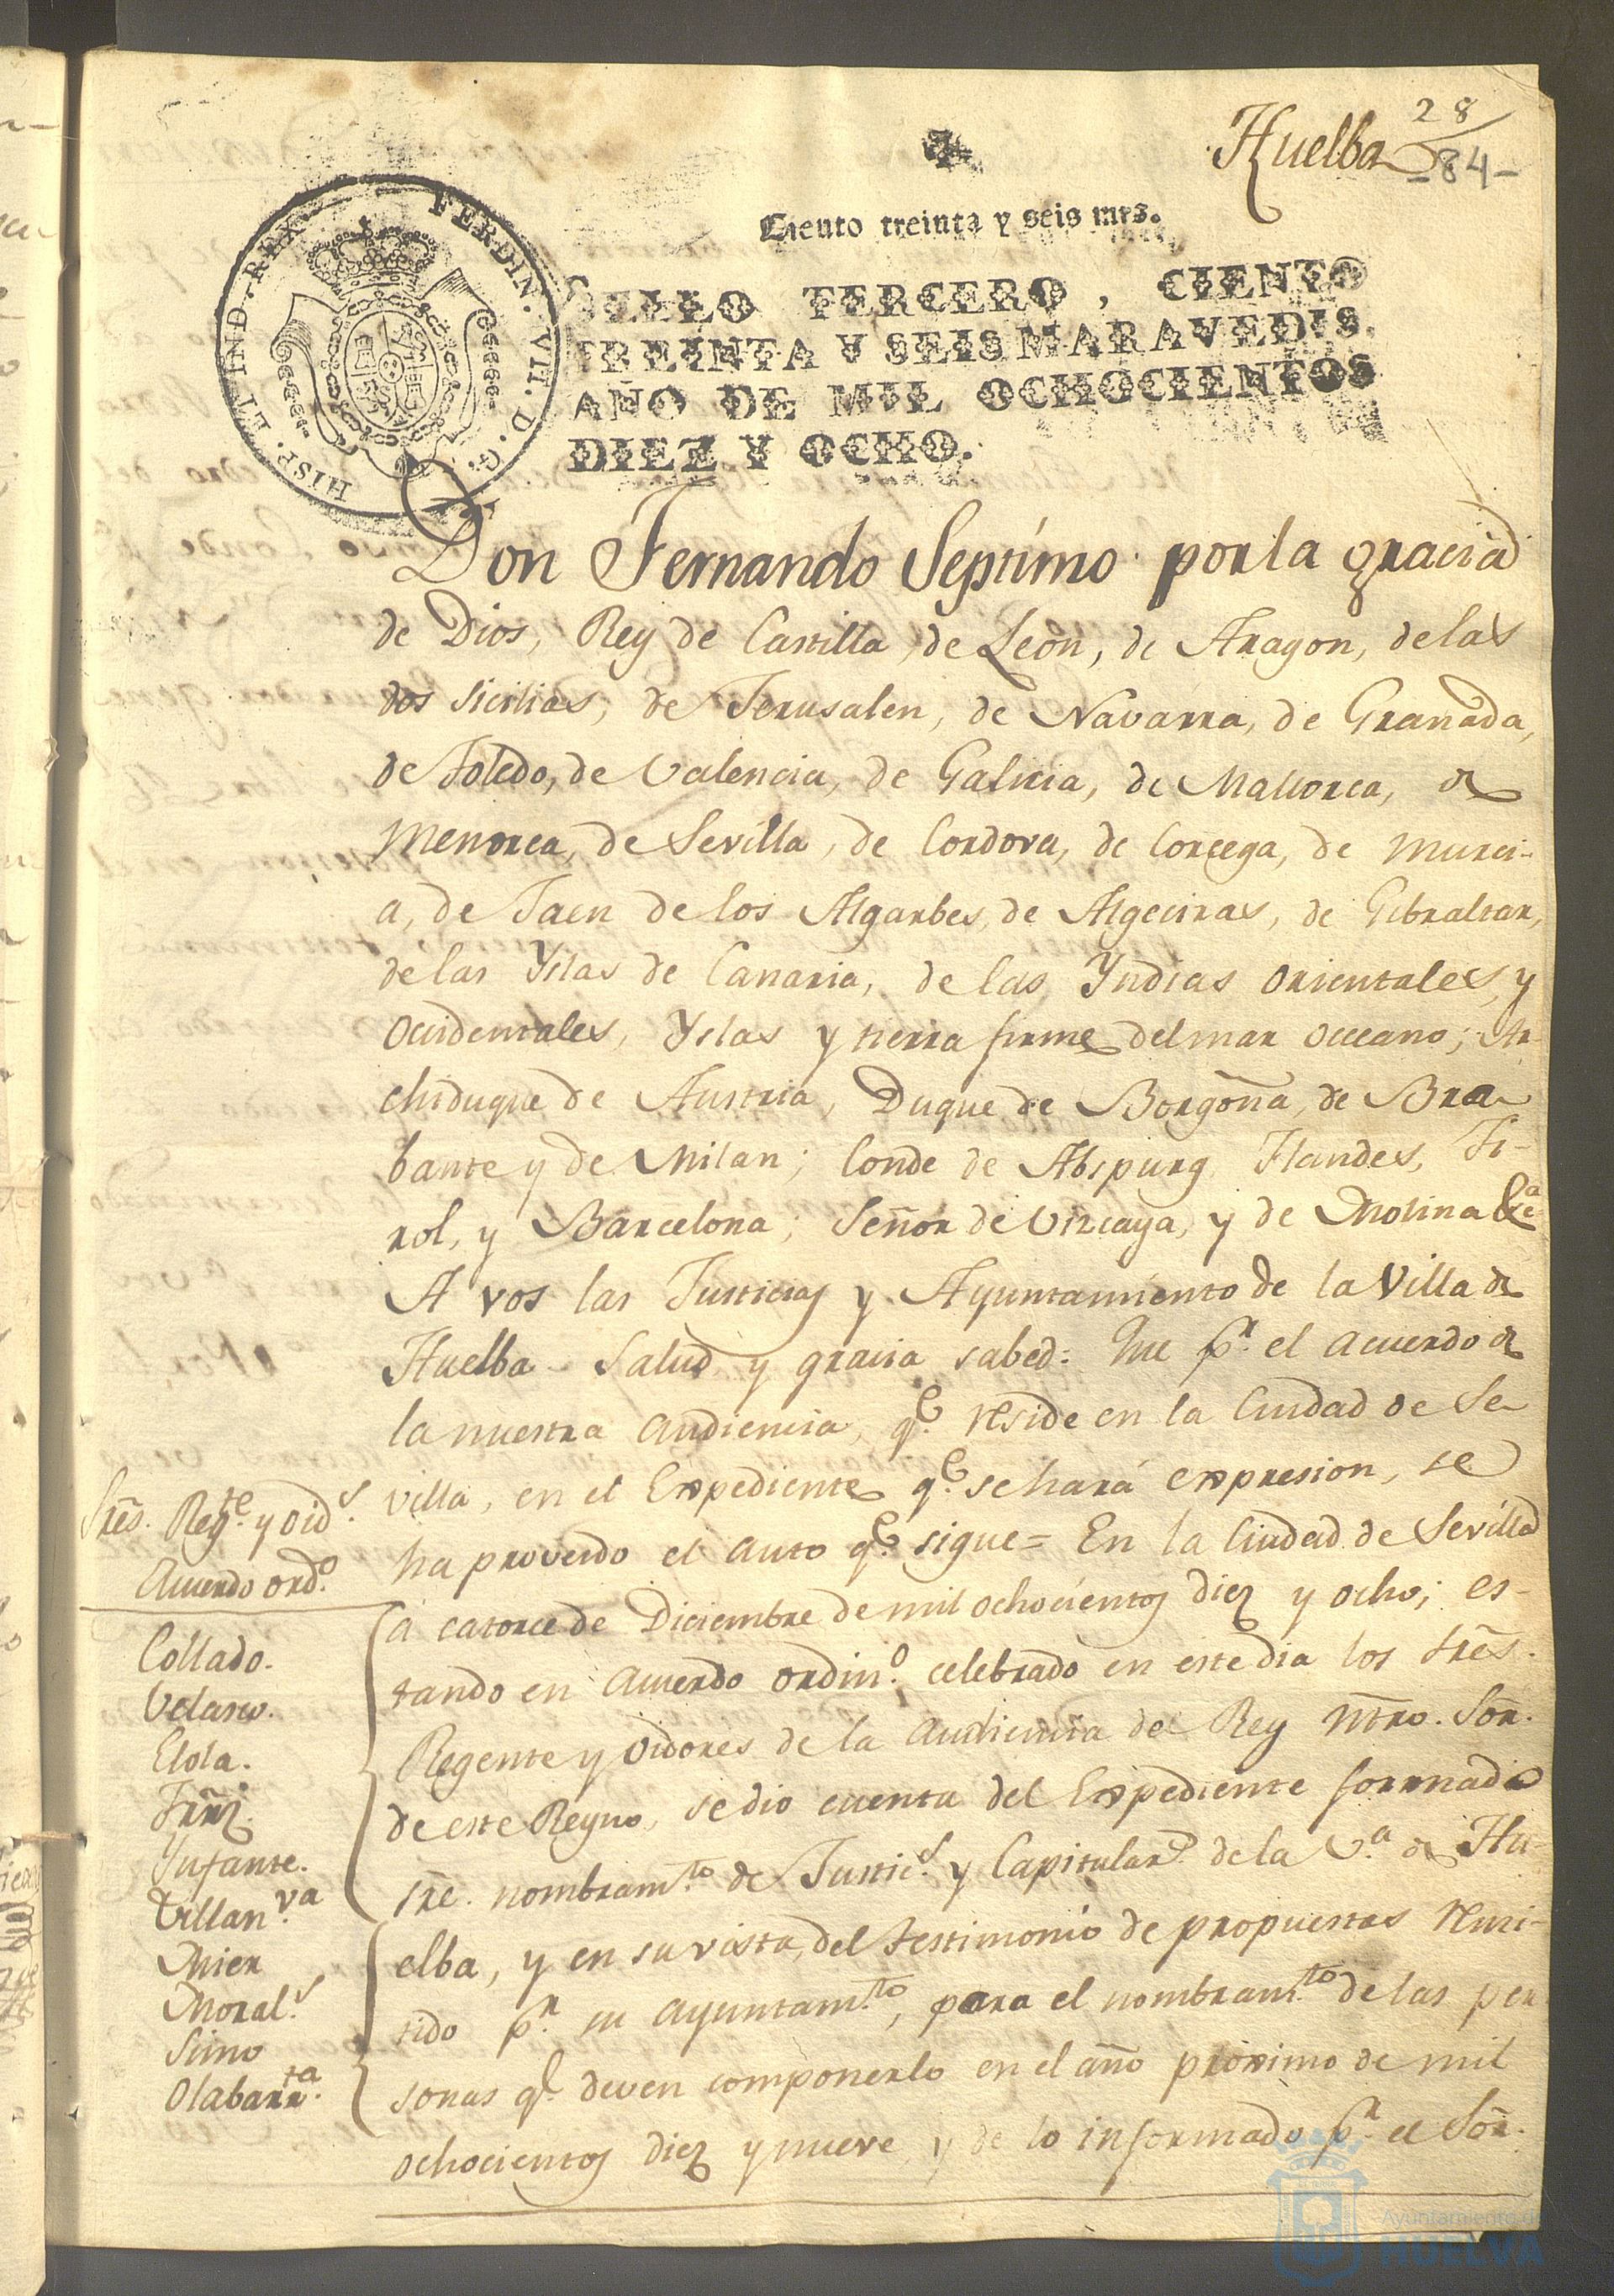 Huelba
28
-84-
Ciento treinta y seis mrs.
HISP. ET IND. REX FERDIN. VII. D. G.
SELLO TERCERO, CIENTO
TREINTA Y SEIS MARAVEDIS,
AÑO DE MIL OCHOCIENTOS
DIEZ Y OCHO.
Don Fernando Septimo por la gracia
de Dios, Rey de Castilla, de Leon, de Aragon, de las
dos Sicilias, de Jerusalen, de Navarra, de Granada,
de Toledo, de Valencia, de Galicia, de Mallorca, de
Menorca, de Sevilla, de Cordova, de Corcega, de Murci-
a, de Jaen de los Algarbes, de Algeciras, de Gibraltar,
de las Yslas de Canaria, de las Yndias orientales, y
occidentales, Yslas y tierra firme del mar occeano; Ar-
chiduque de Austria, Duque de Borgoña, de Bra-
bante y de Milan; Conde de Abspurg Flandes, Ti-
rol, y Barcelona; Señor de Vizcaya, y de Molina &ca
A vos las Justicias y Ayuntamiento de la Villa de
Huelba Salud y gracia sabed: Que pr. el acuerdo de
la nuestra Audiencia, qe. reside en la Ciudad de Se-
villa, en el Expediente qe. se hará expresion, se
ha proveido el auto qe. sigue = En la Ciudad de Sevilla
á catorce de Diciembre de mil ochocientos diez y ocho; es-
tando en Acuerdo ordino. celebrado en este dia los Sres.
Regente y Oidores de la Audiencia del Rey Ntro. Sōr.
de este Reyno, se dio cuenta del Expediente formado
sre. nombramto. de Justics. y Capitulars. de la Va. de Hu-
elba, y en su vista, del testimonio de propuestas remi-
tido pr. su Ayuntamto., para el nombramto. de las per
sonas qe. deven componerlo en el año proximo de mil
ochocientos diez y nueve, y de lo informado pr. el Sōr.
Sres. Regte. y Oids.
Acuerdo ordo.
Collado.
Velasco.
Elola.
Frñz.
Infante.
Villanva.
Mier
Morals.
Simo
Olabarrta.
Ayuntamiento de
HUELVA